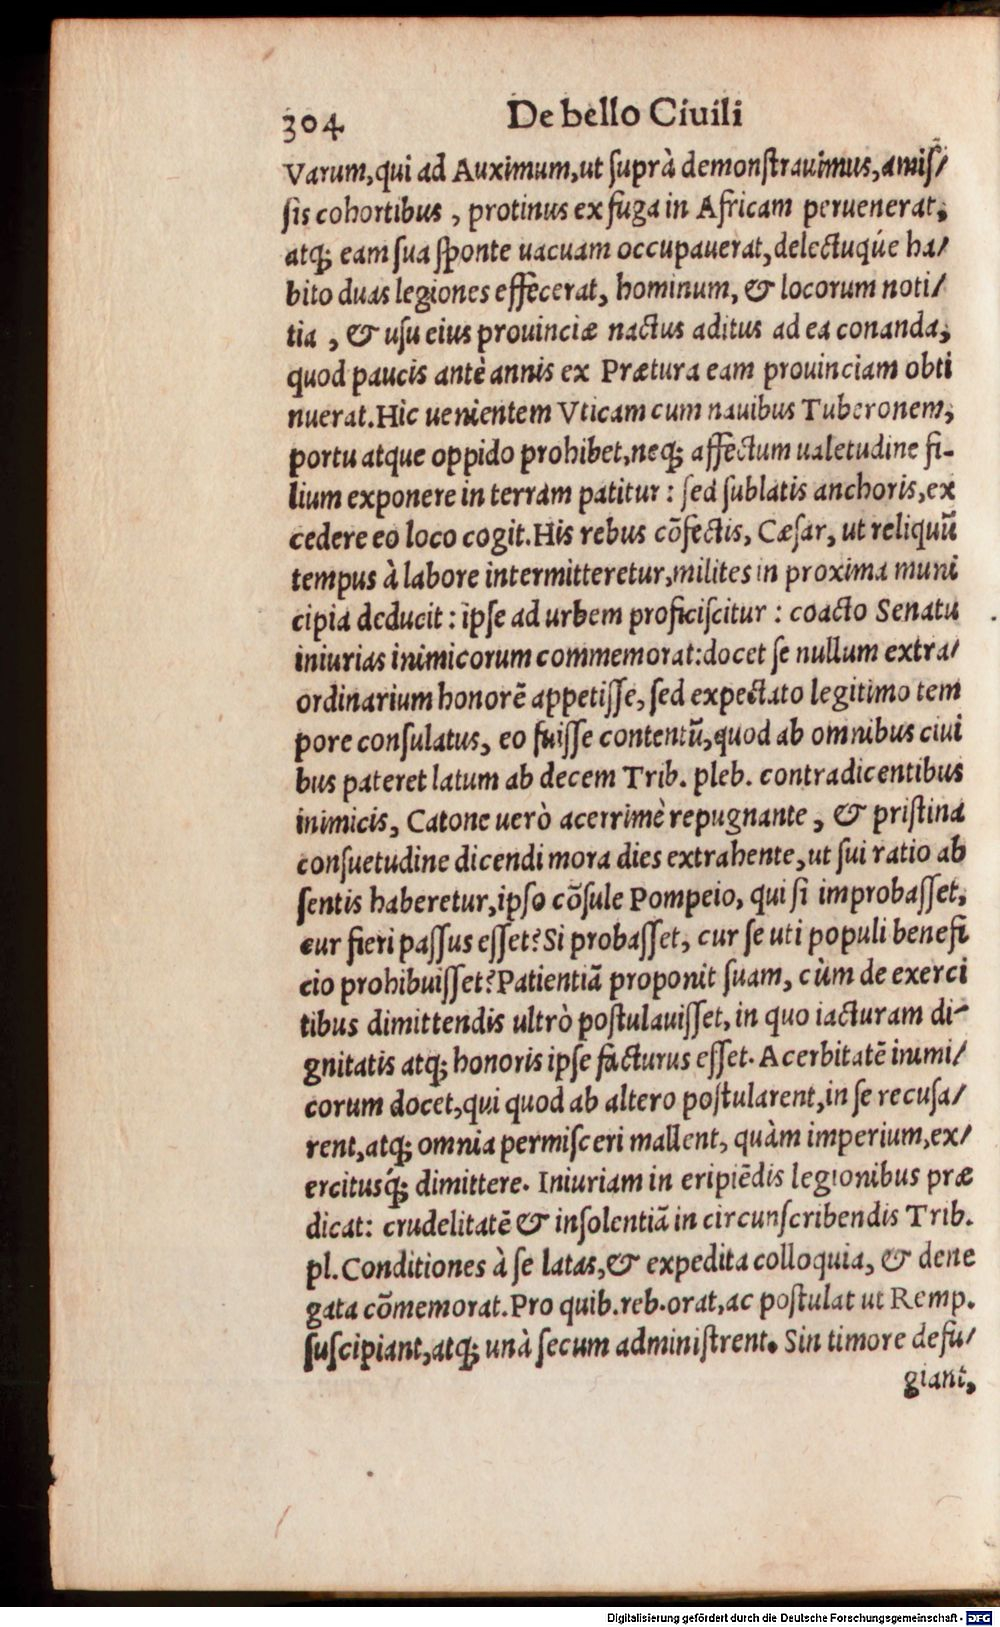 304 De bello Ciuili
Varum,qui ad Auximum,ut ſuprà demonſtrauimus,amiſ/
ſis cohortibus , protinus ex fuga in Africam peruenerat,
atq; eam ſua ſponte uacuam occupauerat,delectuqúe ha/
bito duas legiones effecerat, hominum, & locorum noti/
tia , & uſu eius prouinciæ nactus aditus ad ea conanda,
quod paucis antè annis ex Prætura eam prouinciam obti
nuerat.Hic uenientem Vticam cum nauibus Tuberonem,
portu atque oppido prohibet,neq; affectum ualetudine fi-
lium exponere in terram patitur : ſed ſublatis anchoris,ex
cedere eo loco cogit.His rebus cõfectis, Cæſar, ut reliquũ
tempus à labore intermitteretur,milites in proxima muni
cipia deducit : ipſe ad urbem proficiſcitur : coacto Senatu
iniurias inimicorum commemorat:docet ſe nullum extra/
ordinarium honorẽ appetiſſe, ſed expectato legitimo tem
pore conſulatus, eo fuiſſe contentũ,quod ab omnibus ciui
bus pateret latum ab decem Trib. pleb. contradicentibus
inimicis, Catone uerò acerrimè repugnante , & priſtina
conſuetudine dicendi mora dies extrahente,ut ſui ratio ab
ſentis haberetur,ipſo cõſule Pompeio, qui ſi improbaſſet,
cur fieri paſſus eſſet?Si probaſſet, cur ſe uti populi benefi
cio prohibuiſſet?Patientiã proponit ſuam, cùm de exerci
tibus dimittendis ultrò poſtulauiſſet, in quo iacturam di-
gnitatis atq; honoris ipſe facturus eſſet. Acerbitatẽ inimi/
corum docet,qui quod ab altero poſtularent,in ſe recuſa/
rent,atq; omnia permiſceri mallent, quàm imperium,ex/
ercitusq́; dimittere. Iniuriam in eripiẽdis legionibus præ
dicat: crudelitatẽ & inſolentiã in circunſcribendis Trib.
pl.Conditiones à ſe latas,& expedita colloquia, & dene
gata cõmemorat.Pro quib.reb.orat,ac poſtulat ut Remp.
ſuſcipiant,atq; unà ſecum adminiſtrent. Sin timore defu/
giant,
Digitalisierung gefördert durch die Deutsche Forschungsgemeinschaft - DFG